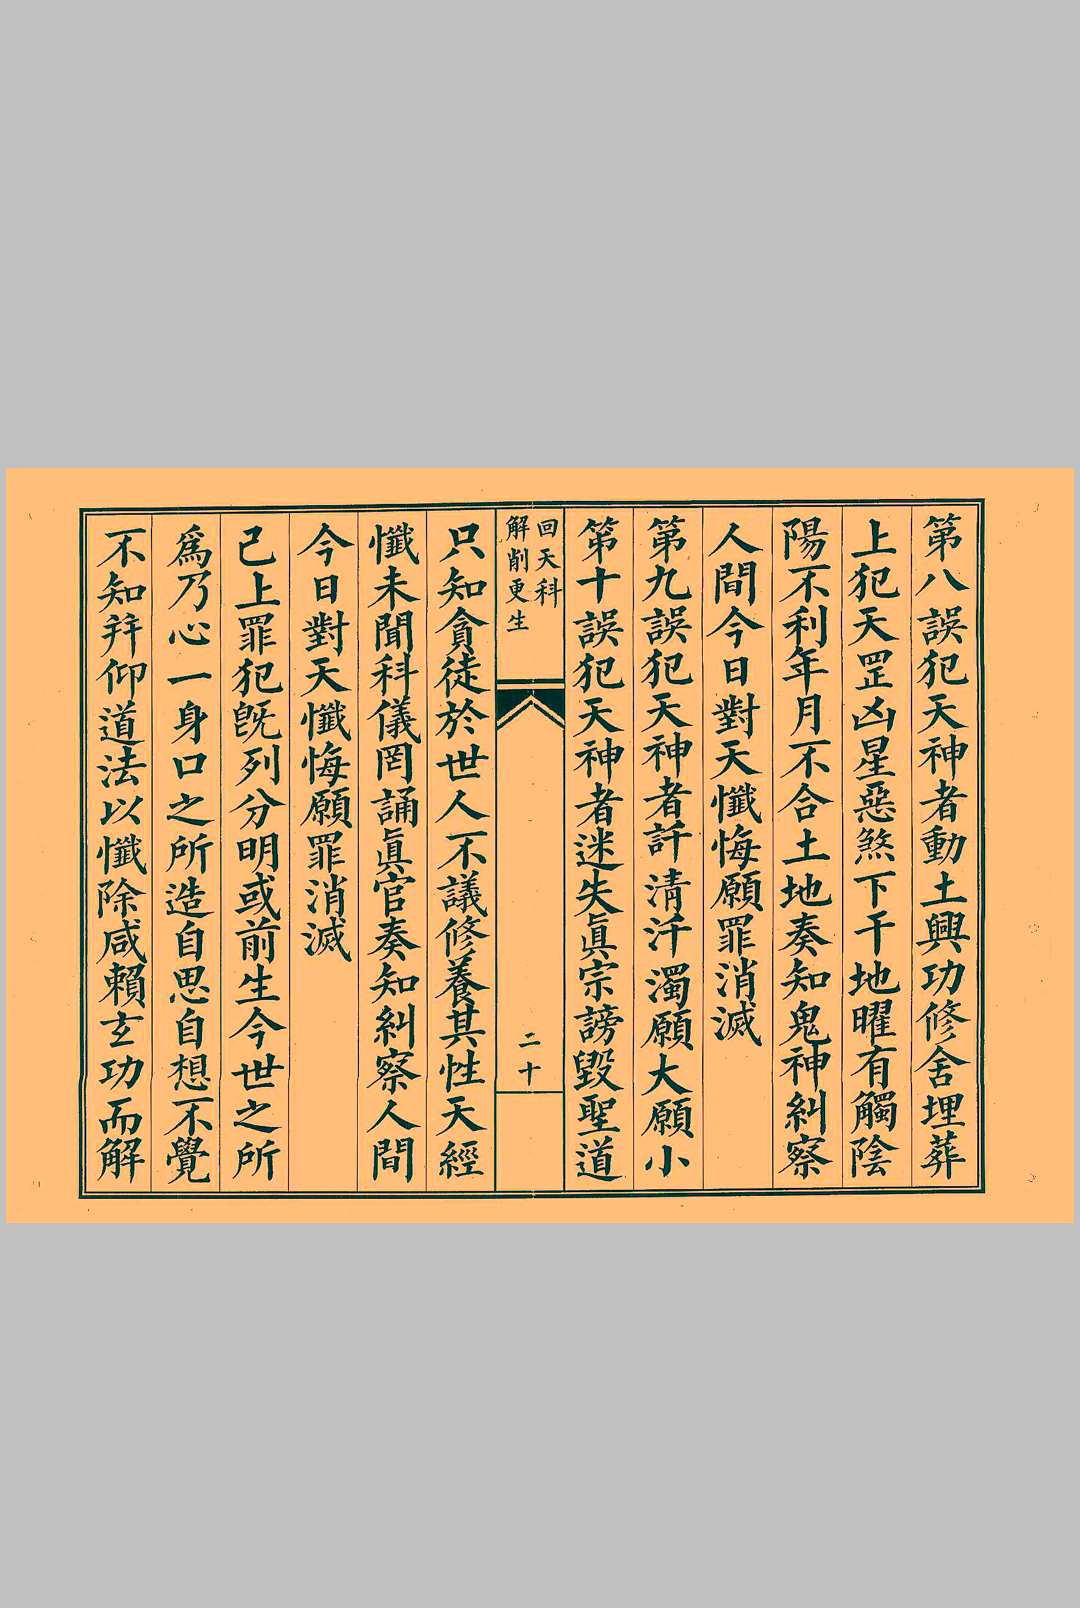 第八誤犯天神者動土興功修舍埋葬
上犯天罡凶星惡煞下干地曜有觸陰
陽不利年月不合土地奏知鬼神糾察
人間今日對天懺悔願罪消滅
第九誤犯天神者許清汗濁願大願小
第十誤犯天神者迷失眞宗謗毀聖道
回天科
解削更生
二十
只知貪徒於世人不議修養其性天經
懺未聞科儀罔誦眞官奏知糾察人間
今日對天懺悔願罪消滅
己上罪犯旣列分明或前生今世之所
爲乃心一身口之所造自思自想不覺
不知辩仰道法以懺除咸賴玄功而解